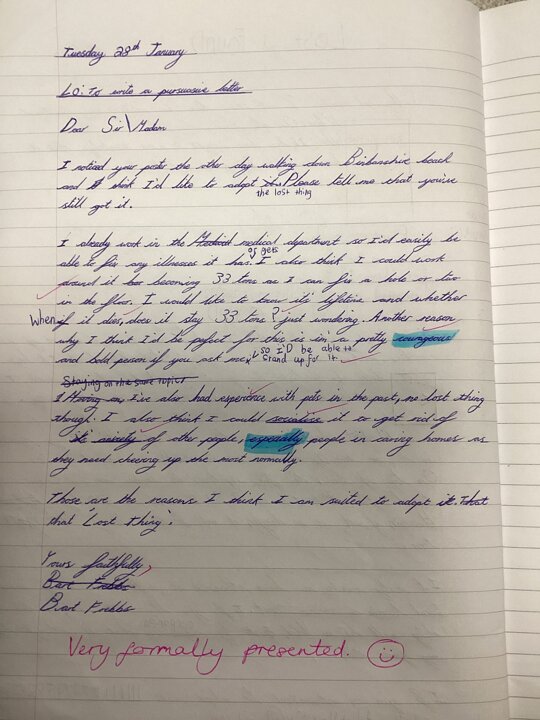 Tuesday 28th January
LO: To write a pursuasive letter
Dear Sir\Madam
I noticed your poster the other day walking down Birbanshire beach
and I think I'd like to adopt it. Please tell me that you've
the lost thing
still got it.
I already work in the Medical medical department so I'd easily be
or gets
able to fix any illnesses it has. I also think I could work
around it becoming 33 tons as I can fix a hole or two
in the floor. I would like to know its lifetime and whether
When if it dies, does it stay 33 tons? just wondering. Another reason
why I think I'd be pefect for this is im a pretty courageous
and bold person if you ask me so I'D be able to
stand up for it
Staying on the same topic
I Moving on, I've also had experience with pets in the past, no lost thing
though. I also think I could socialise it to get rid of
of other people, especially people in caring homes as
they need cheering up the most normally.
Those are the reasons I think I am suited to adopt it. That
that 'Lost Thing'.
Yours faithfully,
Bart Frebbs
Bart Frebbs
Very formally presented.